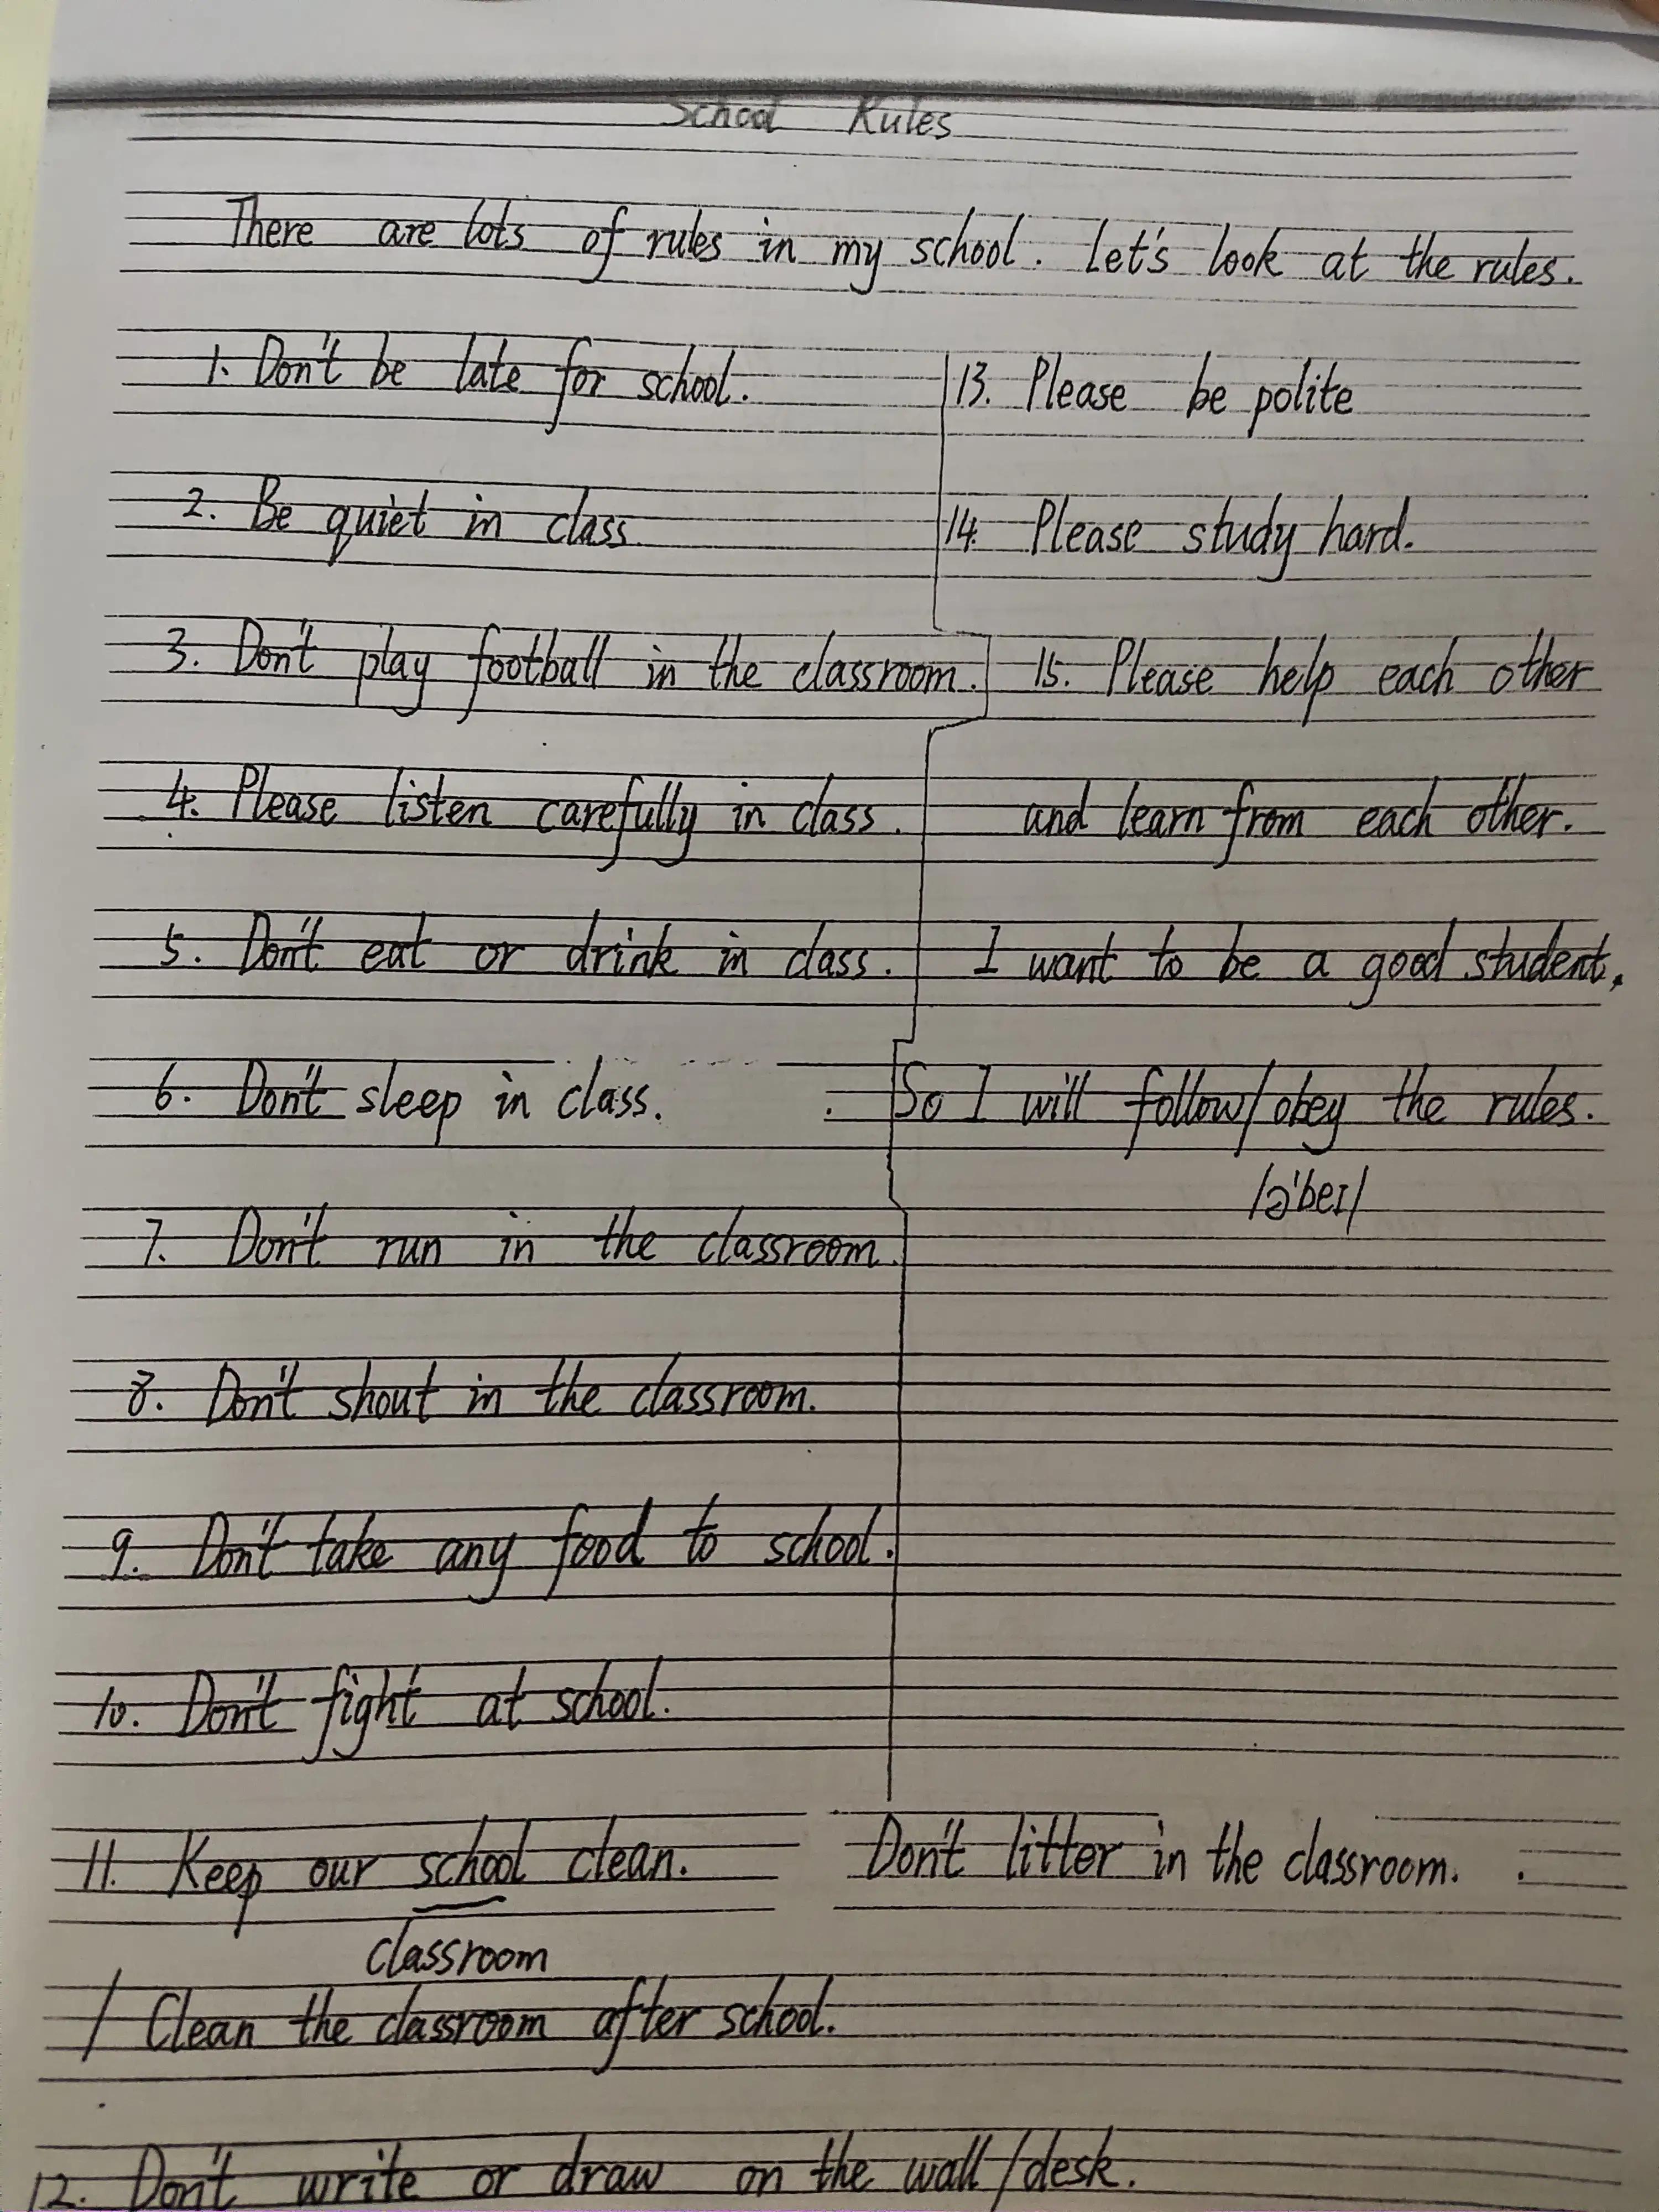 School Rules
There are lots of rules in my school. Let's look at the rules.
1. Don't be late for school.
2. Be quiet in class
3. Don't play football in the classroom.
4. Please listen carefully in class.
5. Don't eat or drink in class.
6. Don't sleep in class.
7. Don't run in the classroom.
8. Don't shout in the classroom.
9. Don't take any food to school.
10. Don't fight at school.
11. Keep our school clean. Don't litter in the classroom.
classroom
/ Clean the classroom after school.
12. Don't write or draw on the wall/desk.
13. Please be polite
14. Please study hard.
15. Please help each other
and learn from each other.
I want to be a good student.
So I will follow/obey the rules.
/ə'beɪ/